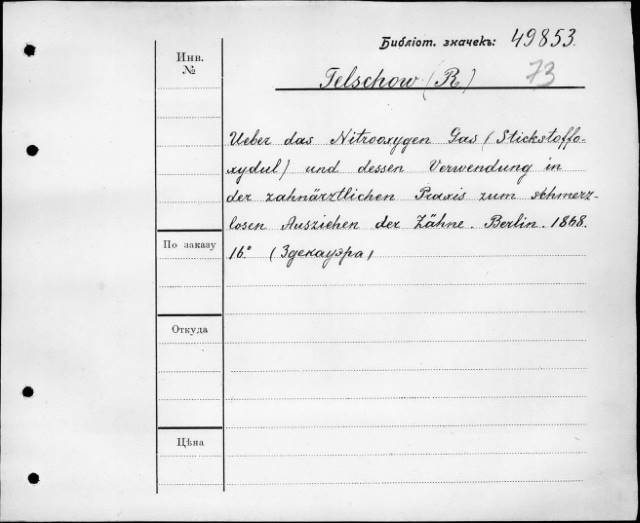 Библіот. значекъ: 49853.
Инв.
№
73
Telschow (R.)
Ueber das Nitrooxygen Gas (Stickstoffo-
xydul) und dessen Verwendung in
der zahnärztlichen Praxis zum schmerz-
losen Ausziehen der Zähne. Berlin. 1868.
По заказу
16° (Здекауэра)
Откуда
Цѣна